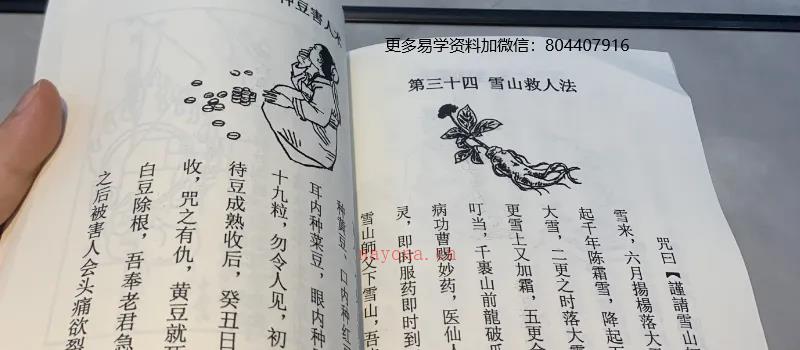 更多易学资料加微信：804407916
种豆害人术
种黄豆、口内种红豆
耳内种菜豆，眼内种
十九粒，勿令人见，初
待豆成熟收后，癸丑日
收，咒之有仇，黄豆就
白豆除根，吾奉老君急
之后被害人会头痛欲裂
第三十四 雪山救人法
咒曰【謹請雪山
雪来，六月揚楊落大
起千年陈霜雪，降起
大雪，二更之时落大
更雪上又加霜，五更
叮当，千裏山前龍破
病功曹赐妙药，医仙人
灵，即时服药即时到
雪山師父下雪山，吾